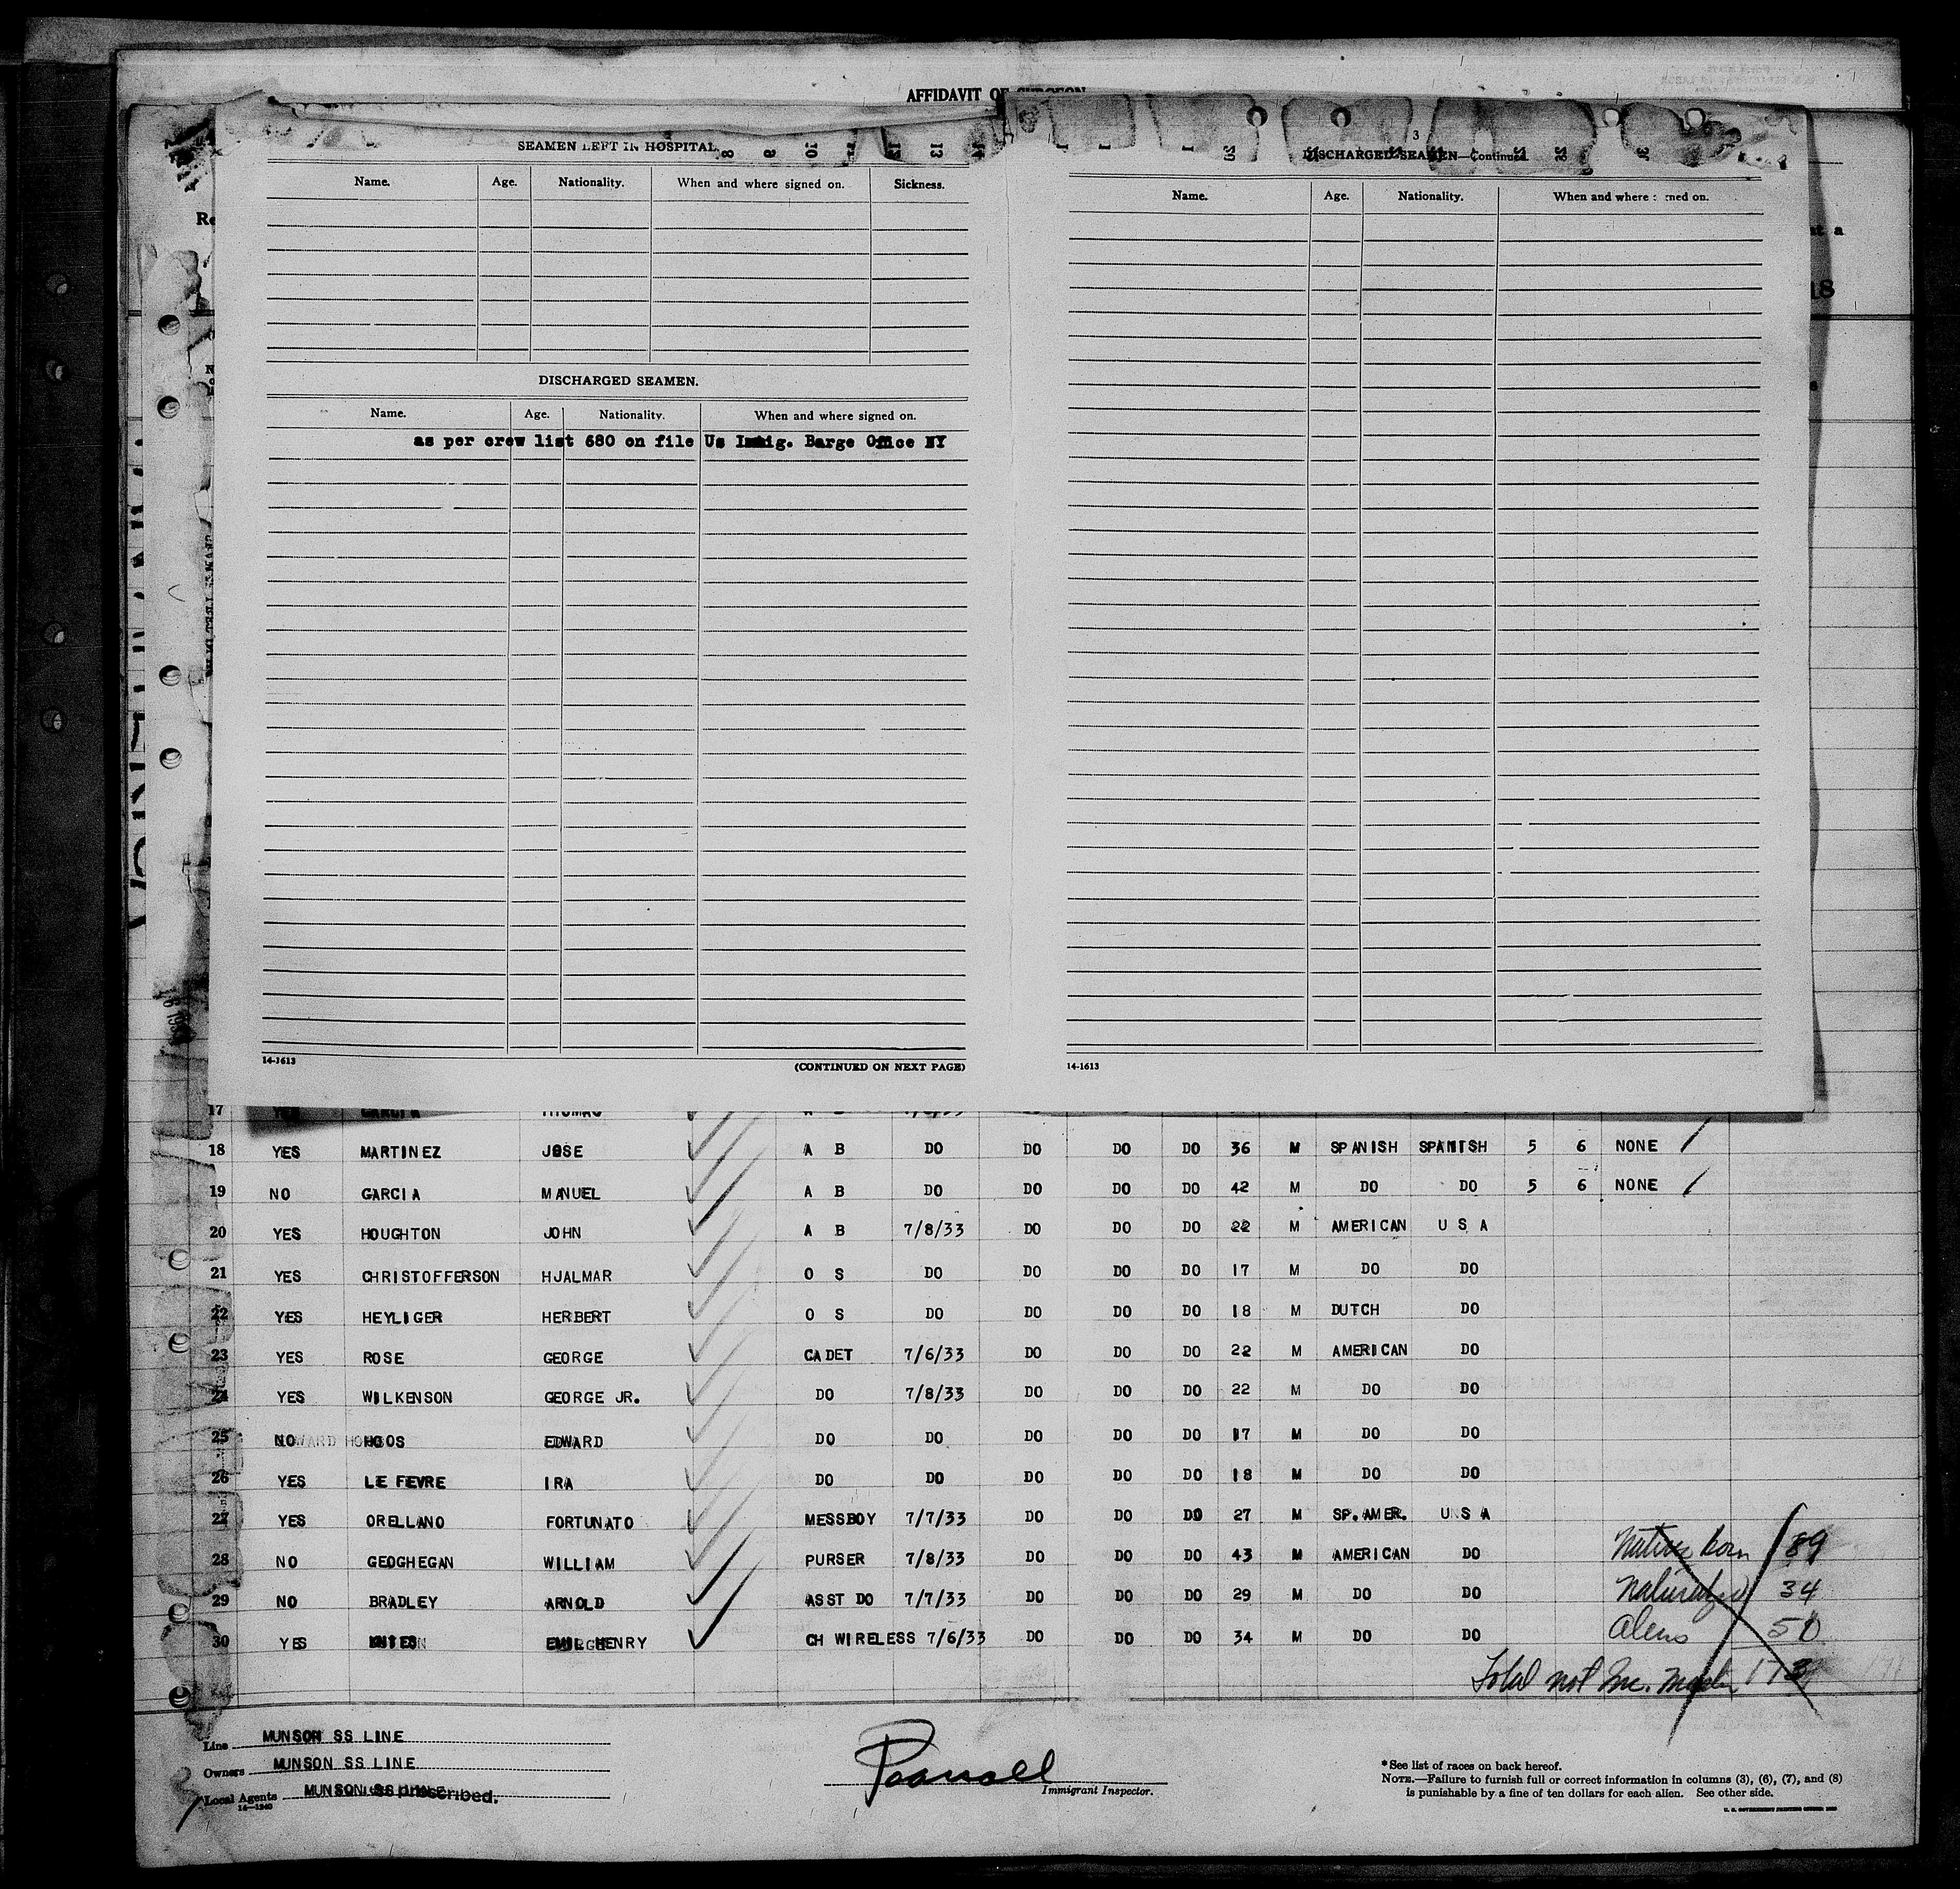 AFFIDAVIT OF SURGEON
SEAMEN LEFT IN HOSPITAL
Name. Age. Nationality. When and where signed on. Sickness.
DISCHARGED SEAMEN.
Name. Age. Nationality. When and where signed on.
as per crew list 680 on file Us Immig. Barge Office NY
14-1613
(CONTINUED ON NEXT PAGE)
3
DISCHARGED SEAMEN—Continued
Name. Age. Nationality. When and where signed on.
14-1613
17 YES GARCIA THOMAS
18 YES MARTINEZ JOSE A B DO DO DO DO 36 M SPANISH SPANISH 5 6 NONE
19 NO GARCIA MANUEL A B DO DO DO DO 42 M DO DO 5 6 NONE
20 YES HOUGHTON JOHN A B 7/8/33 DO DO DO 22 M AMERICAN U S A
21 YES CHRISTOFFERSON HJALMAR O S DO DO DO DO 17 M DO DO
22 YES HEYLIGER HERBERT O S DO DO DO DO 18 M DUTCH DO
23 YES ROSE GEORGE CADET 7/6/33 DO DO DO 22 M AMERICAN DO
24 YES WILKENSON GEORGE JR. DO 7/8/33 DO DO DO 22 M DO DO
25 NO HOOS EDWARD DO DO DO DO DO 17 M DO DO
26 YES LE FEVRE IRA DO DO DO DO DO 18 M DO DO
27 YES ORELLANO FORTUNATO MESSBOY 7/7/33 DO DO DO 27 M SP. AMER. U S A
28 NO GEOGHEGAN WILLIAM PURSER 7/8/33 DO DO DO 43 M AMERICAN DO
29 NO BRADLEY ARNOLD ASST DO 7/7/33 DO DO DO 29 M DO DO
30 YES EMIL HENRY CH WIRELESS 7/6/33 DO DO DO 34 M DO DO
Native born 89
Naturalized 34
Aliens 50
Total not Inc. Master 173
Line MUNSON SS LINE
Owners MUNSON SS LINE
Local Agents MUNSON SS LINE prescribed.
14-1240
Immigrant Inspector.
*See list of races on back hereof.
NOTE.—Failure to furnish full or correct information in columns (3), (6), (7), and (8)
is punishable by a fine of ten dollars for each alien. See other side.